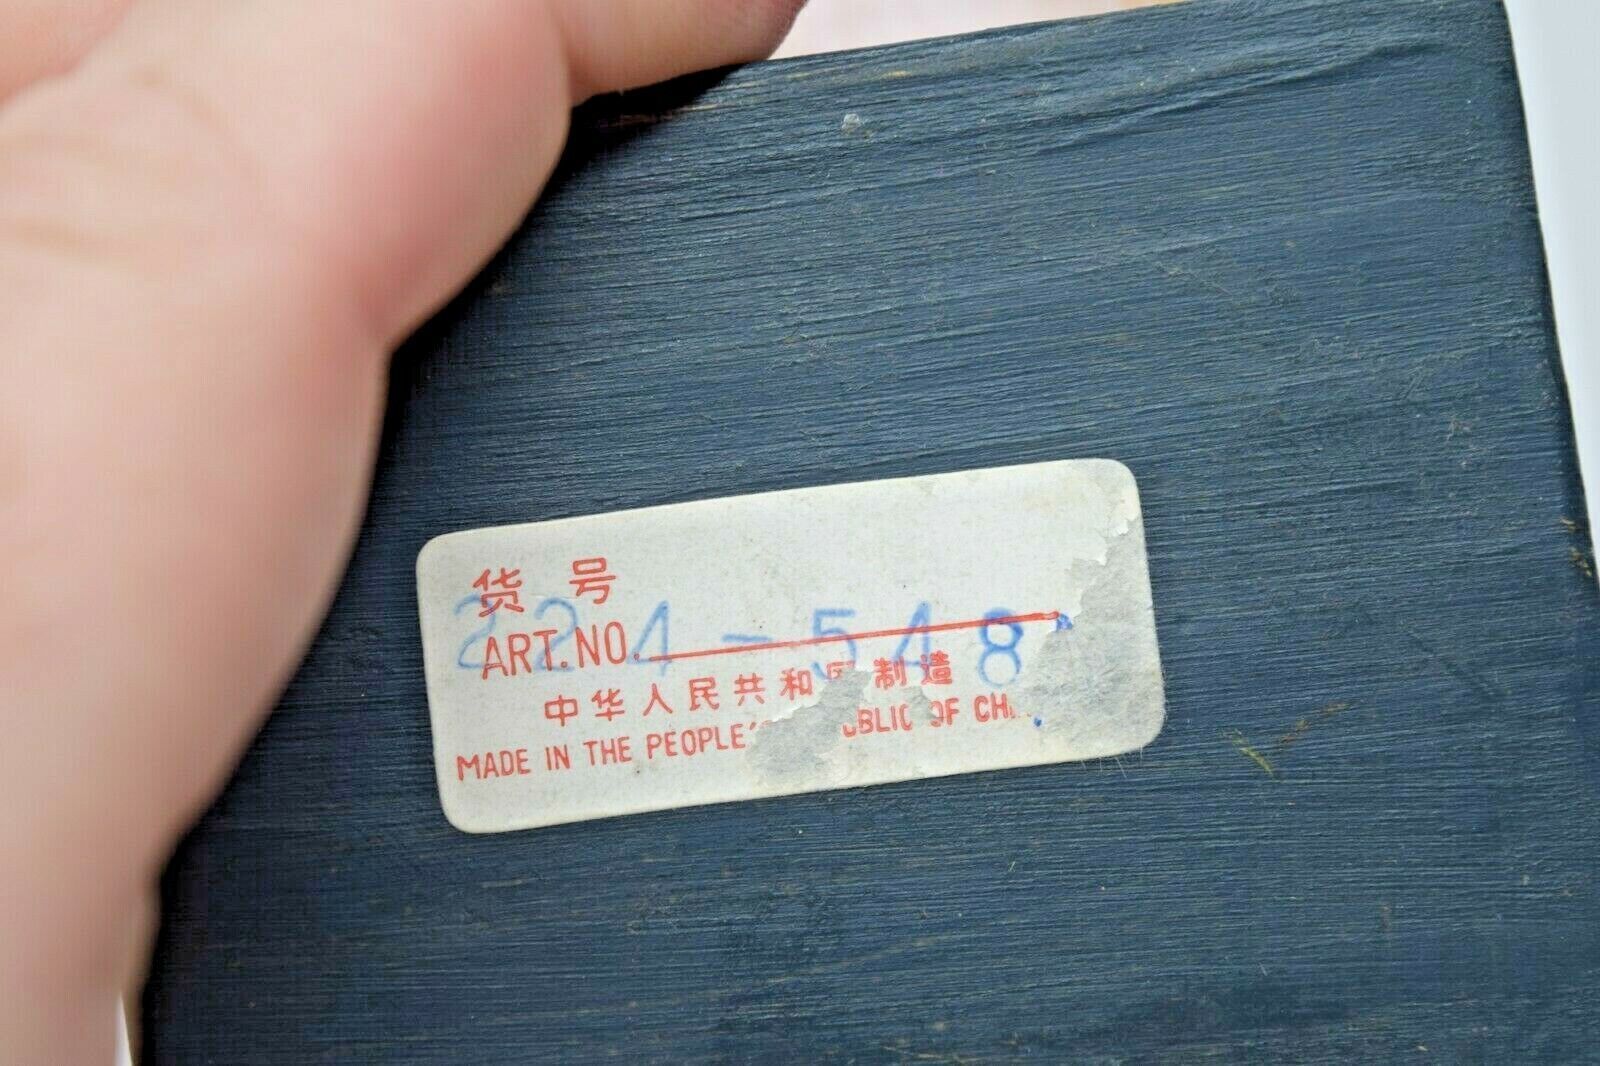 货 号
ART. NO. 224-548
中华人民共和国制造
MADE IN THE PEOPLE'S OF